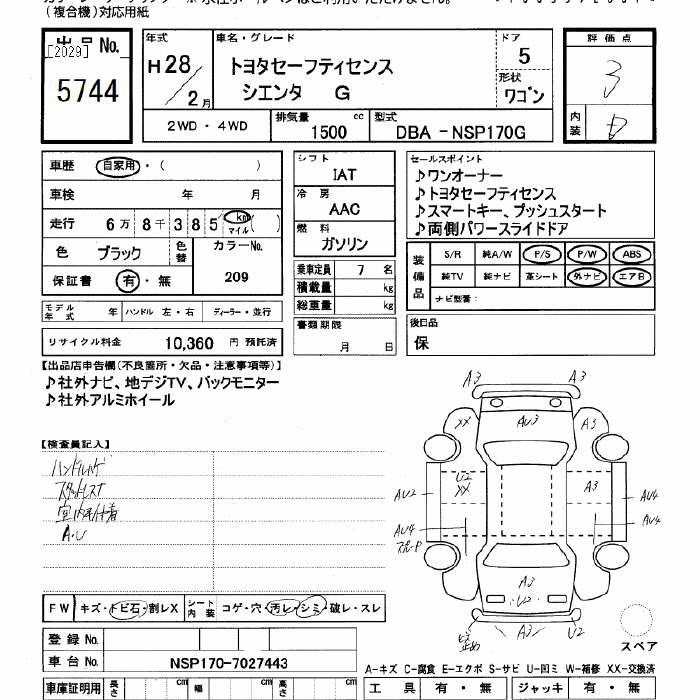 (複合機)対応用紙
出品 No.
[2029]
5744
年式
H28/2月
車名・グレード
トヨタセーフティセンス
シエンタ G
ドア
5
形状
ワゴン
評価点
3
内装
2WD・4WD
排気量
1500 cc
型式
DBA-NSP170G
車歴 自家用・( )
車検 年 月
走行 6万 8千 385 km マイル ( )
色 ブラック 色替
カラーNo.
209
保証書 有・無
シフト
IAT
冷房
AAC
燃料
ガソリン
乗車定員 7 名
積載量 kg
総重量 kg
書類期限
月 日
セールスポイント
♪ワンオーナー
♪トヨタセーフティセンス
♪スマートキー、プッシュスタート
♪両側パワースライドドア
装備品
S/R 純A/W P/S P/W ABS
純TV 純ナビ 革シート 外ナビ エアB
ナビ型番:
後日品
保
モデル年式 年 ハンドル 左・右 ディーラー・並行
リサイクル料金 10,360 円 預託済
【出品店申告欄(不良箇所・欠品・注意事項等)】
♪社外ナビ、地デジTV、バックモニター
♪社外アルミホイール
【検査員記入】
A.U
A3 A3
XX AU3 A3
U2
XX
A3
AU2 AU4
AU4 AU4
A3
U2
A3 U2
スペア
FW キズ・トビ石・割レX シート内装 コゲ・穴・汚レ・シミ・破レ・スレ
登録 No.
車台 No. NSP170-7027443
A-キズ C-腐食 E-エクボ S-サビ U-凹ミ W-補修 XX-交換済
車庫証明用 長さ cm 幅 cm 高さ cm
工具 有・無 ジャッキ 有・無